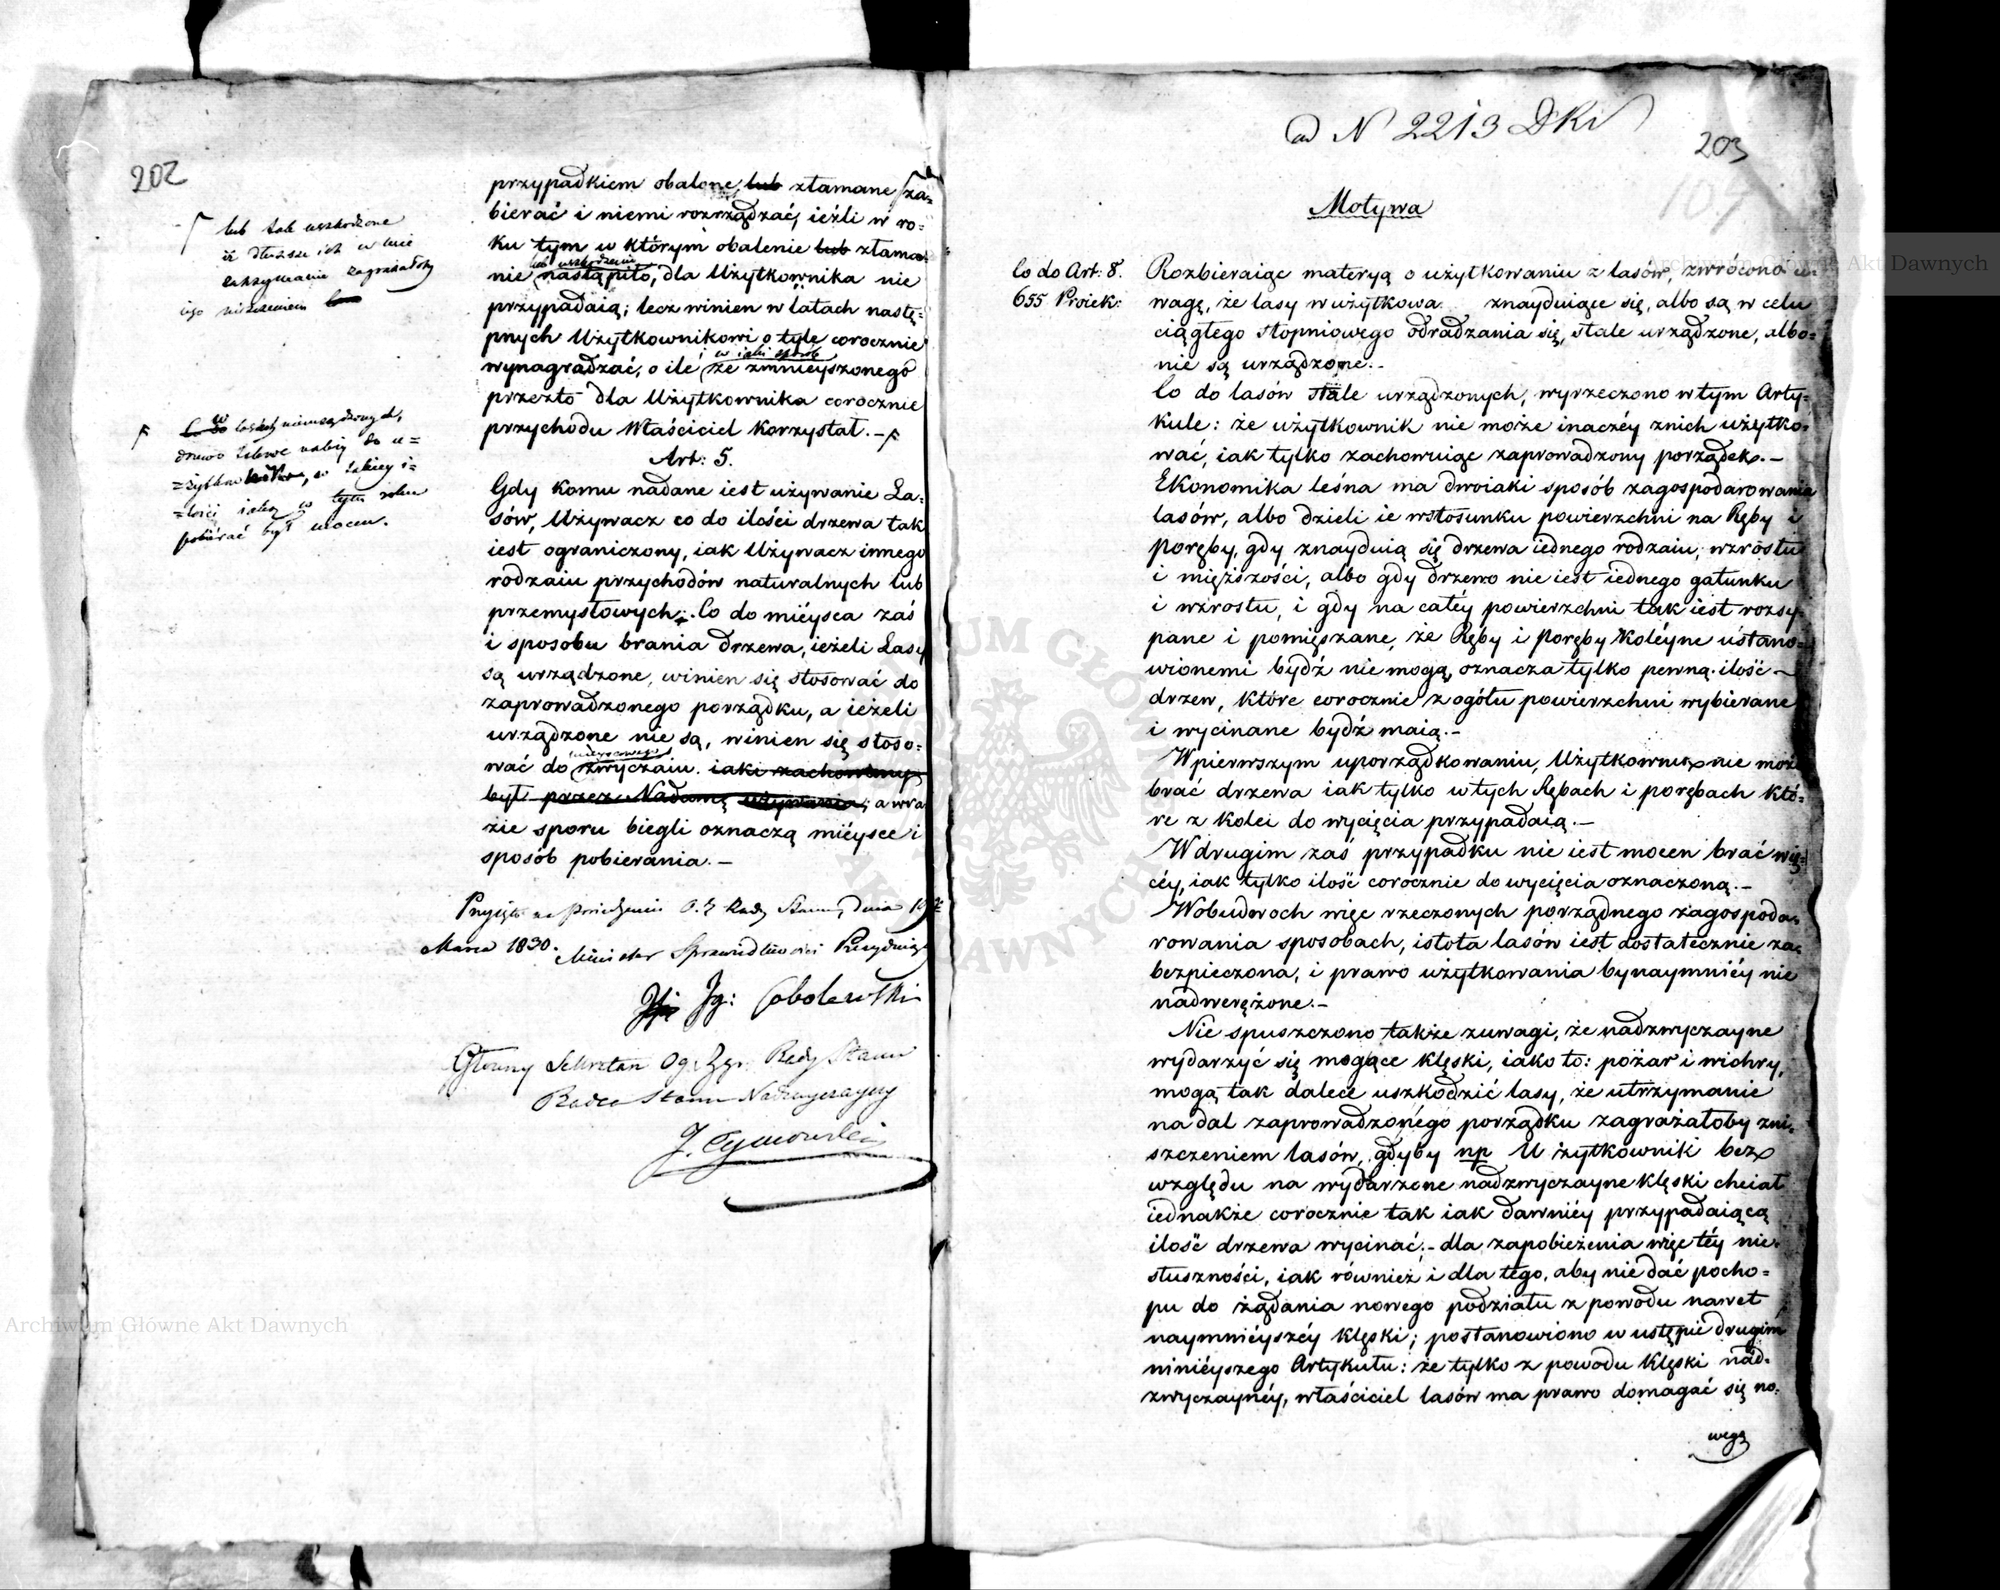 202
lub tak uszkodzone
iż dłuższe ich w lesie
zatrzymanie zagrażałoby
iego zniszczeniem
w lasach nieurządzonych,
drzewo zdrowe należy do u=
=żytkownika, w takiey i=
=lości iaką w tym roku
pobierać był mocen.
przypadkiem obalone, lub złamane za=
bierać i niemi rozrządzać, ieżli w ro=
ku tym w którym obalenie lub złama=
lub uszkodzenie
nie nastąpiło, dla Użytkownika nie
przypadaią; lecz winien w latach nastę=
pnych Użytkownikowi o tyle corocznie
w iaki sposób
wynagradzać, o ile ze zmnieyszonego
przezto dla Użytkownika corocznie
przychodu Właściciel korzystał.-
Art: 5.
Gdy komu nadane iest używanie La=
sów, Używacz co do ilości drzewa tak
iest ograniczony, iak Używacz innego
rodzaiu przychodów naturalnych lub
przemysłowych; Co do mieysca zaś
i sposobu brania drzewa, ieżeli Lasy
są urządzone, winien się stosować do
zaprowadzonego porządku, a ieżeli
urządzone nie są, winien się stoso=
mieyscowego
wać do zwyczaiu. iaki zachowany
był przez Nadawcę używania, a wra
zie sporu biegli oznaczą mieysce i
sposób pobierania.-
Przyięto na Posiedzeniu O. Z. Rady Stanu, dnia
Marca 1830. Minister Sprawiedliwości Prezyduiący
Ig: Sobolewski
Główny Sekretarz Og. Zgr. Rady Stanu
Radca Stanu Nadzwyczayny
J. Tymowski
ad N 2213 DKi
203
107
Motywa
Co do Art: 8.
655 Proiek:
Rozbieraiąc materyą o użytkowaniu z lasów, zwrócono u=
wagę, że lasy w użytkowa znayduiące się, albo są w celu
ciągłego stopniowego odradzania się, stale urządzone, albo=
nie są urządzone.-
Co do lasów stale urządzonych, wyrzeczono w tym Arty=
kule: że użytkownik nie może inaczéy z nich użytko=
wać, iak tylko zachowuiąc zaprowadzony porządek.-
Ekonomika leśna ma dwoiaki sposób zagospodarowania
lasów, albo dzieli ie w stosunku powierzchni na Ręby i
Poręby, gdy znayduią się drzewa iednego rodzaiu, wzrostu
i miąższości, albo gdy drzewo nie iest iednego gatunku
i wzrostu, i gdy na całéy powierzchni tak iest rozsy=
pane i pomięszane, że Ręby i Poręby koléyne ustano=
wionemi bydź nie mogą, oznacza tylko pewną ilość
drzew, które corocznie z ogółu powierzchni wybierane
i wycinane bydź maią.-
W pierwszym uporządkowaniu, Użytkownik nie może
brać drzewa iak tylko w tych Rębach i porębach któ=
re z kolei do wycięcia przypadaią.-
W drugim zaś przypadku nie iest mocen brać wię=
céy, iak tylko ilość corocznie do wycięcia oznaczoną.-
W obudwóch więc rzeczonych porządnego zagospoda=
rowania sposobach, istota lasów iest dostatecznie za=
bezpieczona, i prawo użytkowania bynaymniéy nie
nadwerężone.-
Nie spuszczono także z uwagi, że nadzwyczayne
wydarzyć się mogące klęski, iako to: pożar i wichry,
mogą tak dalece uszkodzić lasy, że utrzymanie
nadal zaprowadzonégo porządku zagrażałoby zni=
szczeniem lasów, gdyby np Użytkownik bez
względu na wydarzone nadzwyczayne klęski chciał
iednakże corocznie tak iak dawniéy przypadaiącą
ilość drzewa wycinać;- dla zapobieżenia więc téy nie=
słuszności, iak również i dla tego, aby nie dać pocho=
pu do żądania nowego podziału z powodu nawet
naymnieyszéy klęski; postanowiono w ustępie drugim
ninieyszego Artykułu: że tylko z powodu klęski nad=
zwyczaynéy, właściciel lasów ma prawo domagać się no=
wego